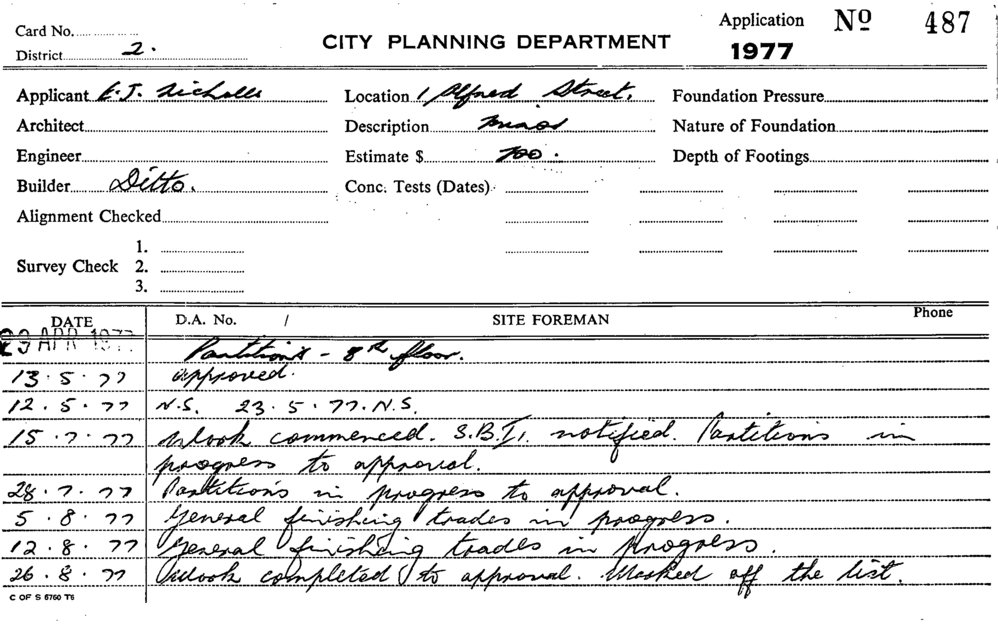 Card No.
Application Nº 487
District 2.
CITY PLANNING DEPARTMENT
1977
Applicant E.J. Nicholls Location 1 Alfred Street. Foundation Pressure
Architect Description Nature of Foundation
Engineer Estimate $ 700. Depth of Footings
Builder Ditto. Conc. Tests (Dates)
Alignment Checked
1.
Survey Check 2.
3.
DATE D.A. No. / SITE FOREMAN Phone
APR 1977 Partitions - 8th floor.
13.5.77 approved.
12.5.77 N.S. 23.5.77. N.S.
15.7.77 Work commenced. S.B.I. notified. Partitions in
progress to approval.
28.7.77 Partitions in progress to approval.
5.8.77 General finishing trades in progress.
12.8.77 General finishing trades in progress.
26.8.77 Work completed to approval. Marked off the list.
C OF S 6760 T6